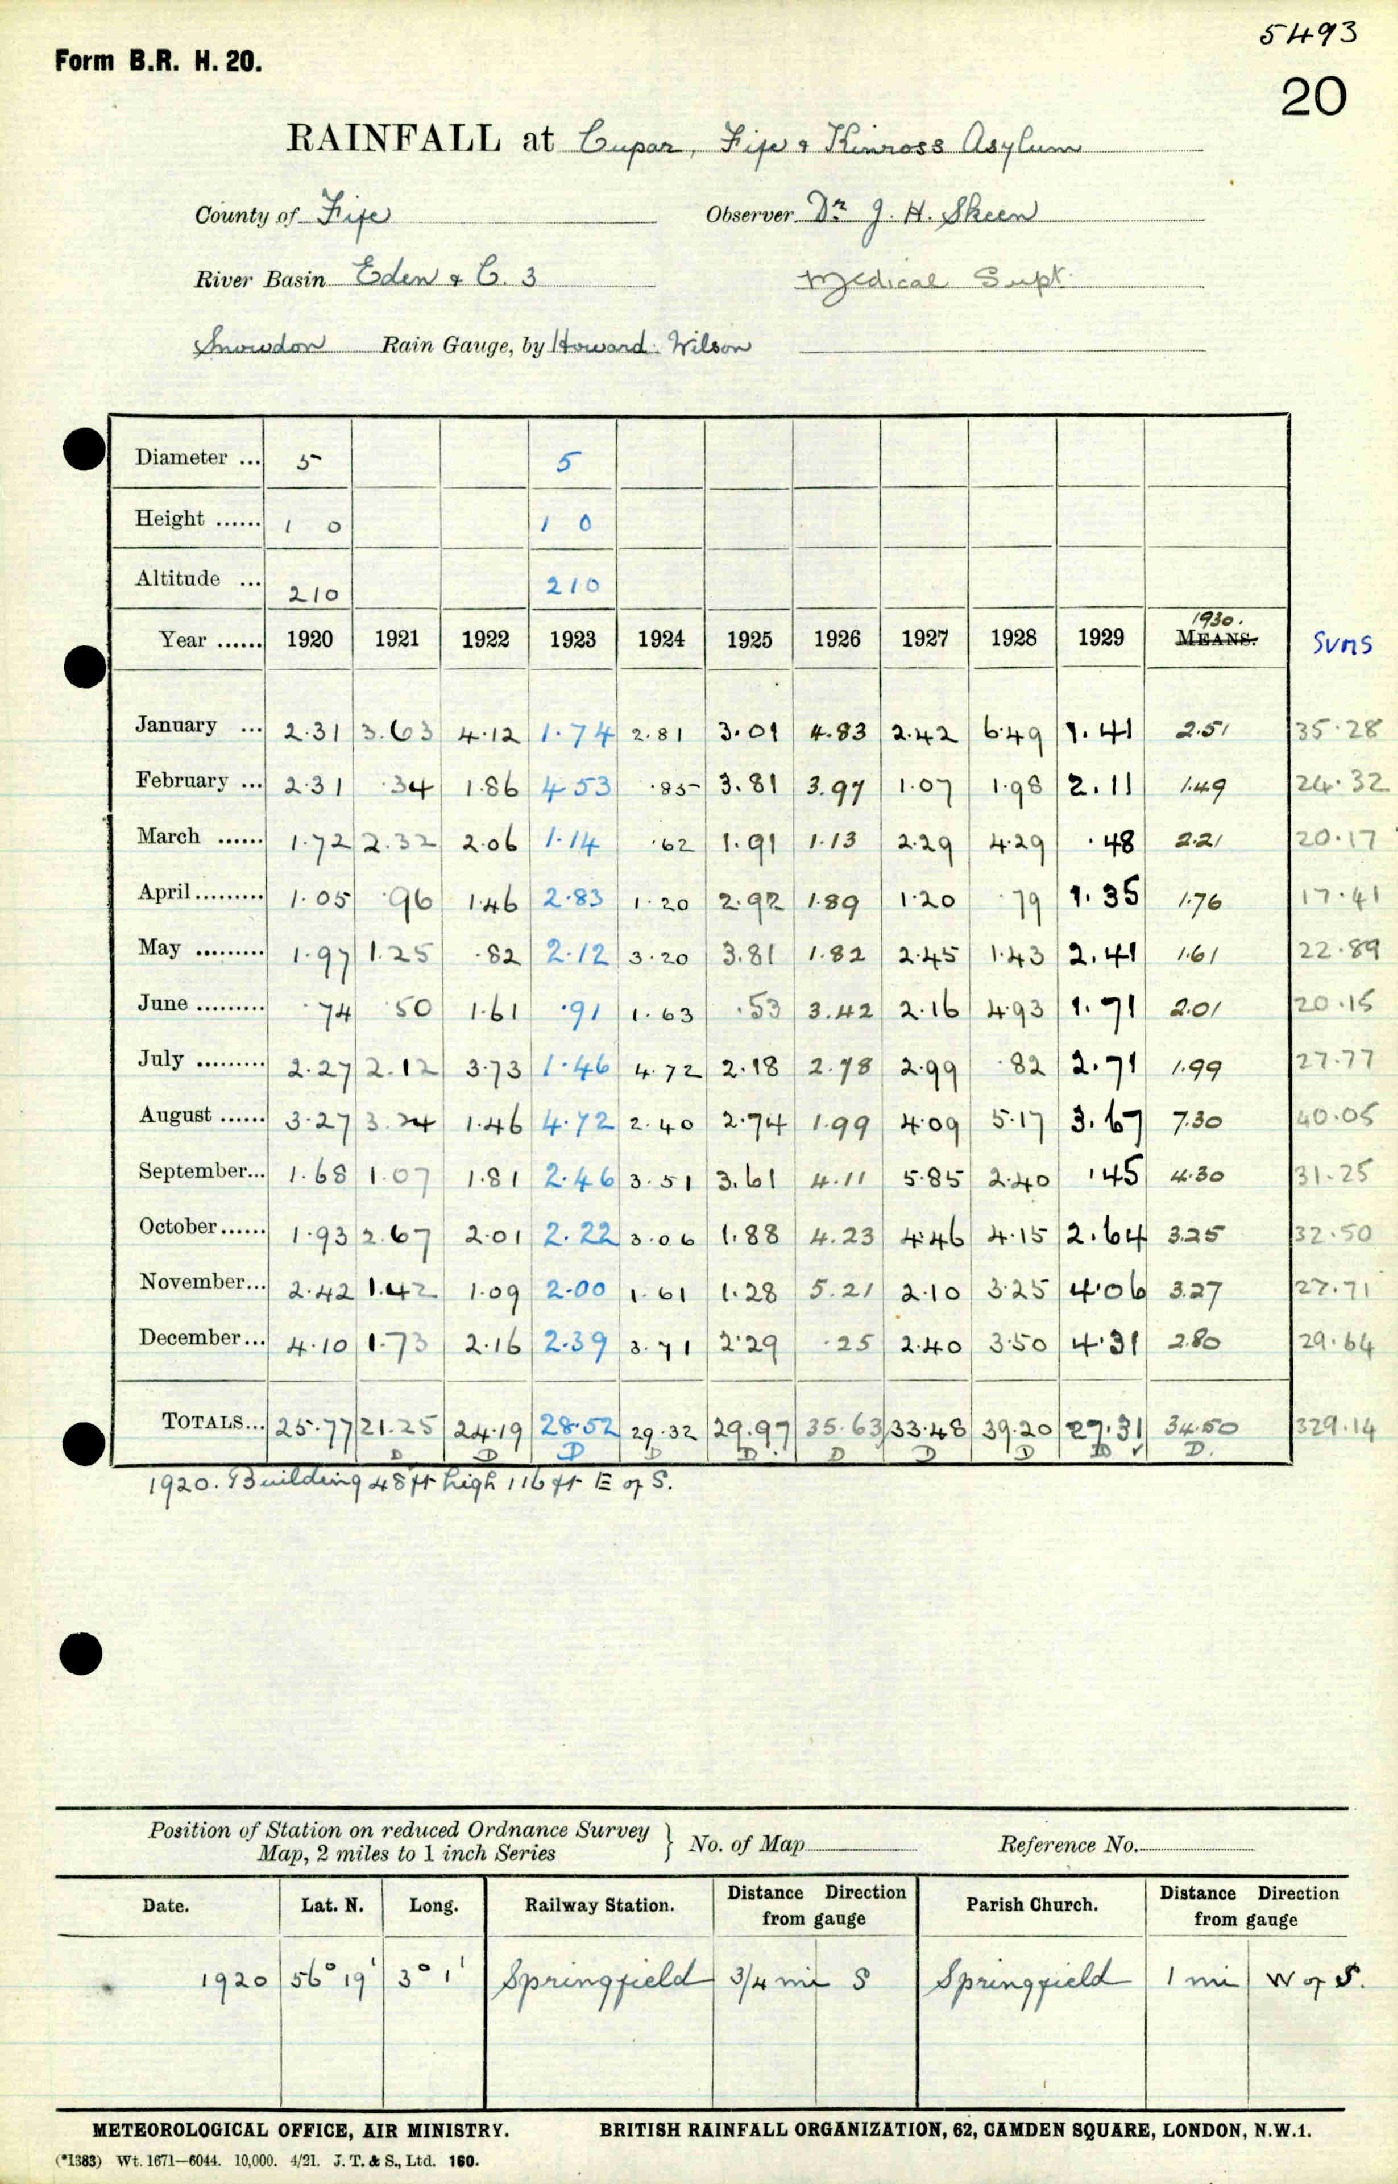 5493
Form B.R. H. 20.
20
RAINFALL at Cupar, Fife & Kinross Asylum
County of Fife Observer Dr J. H. Skeen
River Basin Eden & C. 3 Medical Supt.
Snowdon Rain Gauge, by Howard. Wilson
Diameter ... 5 5
Height ...... 1 0 1 0
Altitude ... 210 210
1930.
Year ...... 1920 1921 1922 1923 1924 1925 1926 1927 1928 1929 MEANS. SUMS
January ... 2.31 3.63 4.12 1.74 2.81 3.01 4.83 2.42 6.49 1.41 2.51 35.28
February ... 2.31 .34 1.86 4.53 .85 3.81 3.97 1.07 1.98 2.11 1.49 24.32
March ...... 1.72 2.32 2.06 1.14 .62 1.91 1.13 2.29 4.29 .48 2.21 20.17
April ......... 1.05 .96 1.46 2.83 1.20 2.92 1.89 1.20 .79 1.35 1.76 17.41
May ......... 1.97 1.25 .82 2.12 3.20 3.81 1.82 2.45 1.43 2.41 1.61 22.89
June ......... .74 .50 1.61 .91 1.63 .53 3.42 2.16 4.93 1.71 2.01 20.15
July ......... 2.27 2.12 3.73 1.46 4.72 2.18 2.78 2.99 .82 2.71 1.99 27.77
August ...... 3.27 3.24 1.46 4.72 2.40 2.74 1.99 4.09 5.17 3.67 7.30 40.05
September... 1.68 1.07 1.81 2.46 3.51 3.61 4.11 5.85 2.40 .45 4.30 31.25
October...... 1.93 2.67 2.01 2.22 3.06 1.88 4.23 4.46 4.15 2.64 3.25 32.50
November... 2.42 1.42 1.09 2.00 1.61 1.28 5.21 2.10 3.25 4.06 3.27 27.71
December... 4.10 1.73 2.16 2.39 3.71 2.29 .25 2.40 3.50 4.31 2.80 29.64
TOTALS... 25.77 21.25 24.19 28.52 29.32 29.97 35.63 33.48 39.20 27.31 34.50 329.14
D D D D D D D D D ✓ D.
1920. Building 48 ft high 116 ft E of S.
Position of Station on reduced Ordnance Survey
Map, 2 miles to 1 inch Series } No. of Map Reference No.
Date. Lat. N. Long. Railway Station. Distance Direction from gauge Parish Church. Distance Direction from gauge
1920 56° 19' 3° 1' Springfield 3/4 mi S Springfield 1 mi W of S.
METEOROLOGICAL OFFICE, AIR MINISTRY. BRITISH RAINFALL ORGANIZATION, 62, CAMDEN SQUARE, LONDON, N.W.1.
(*1383) Wt. 1671—6044. 10,000. 4/21. J. T. & S., Ltd. 160.